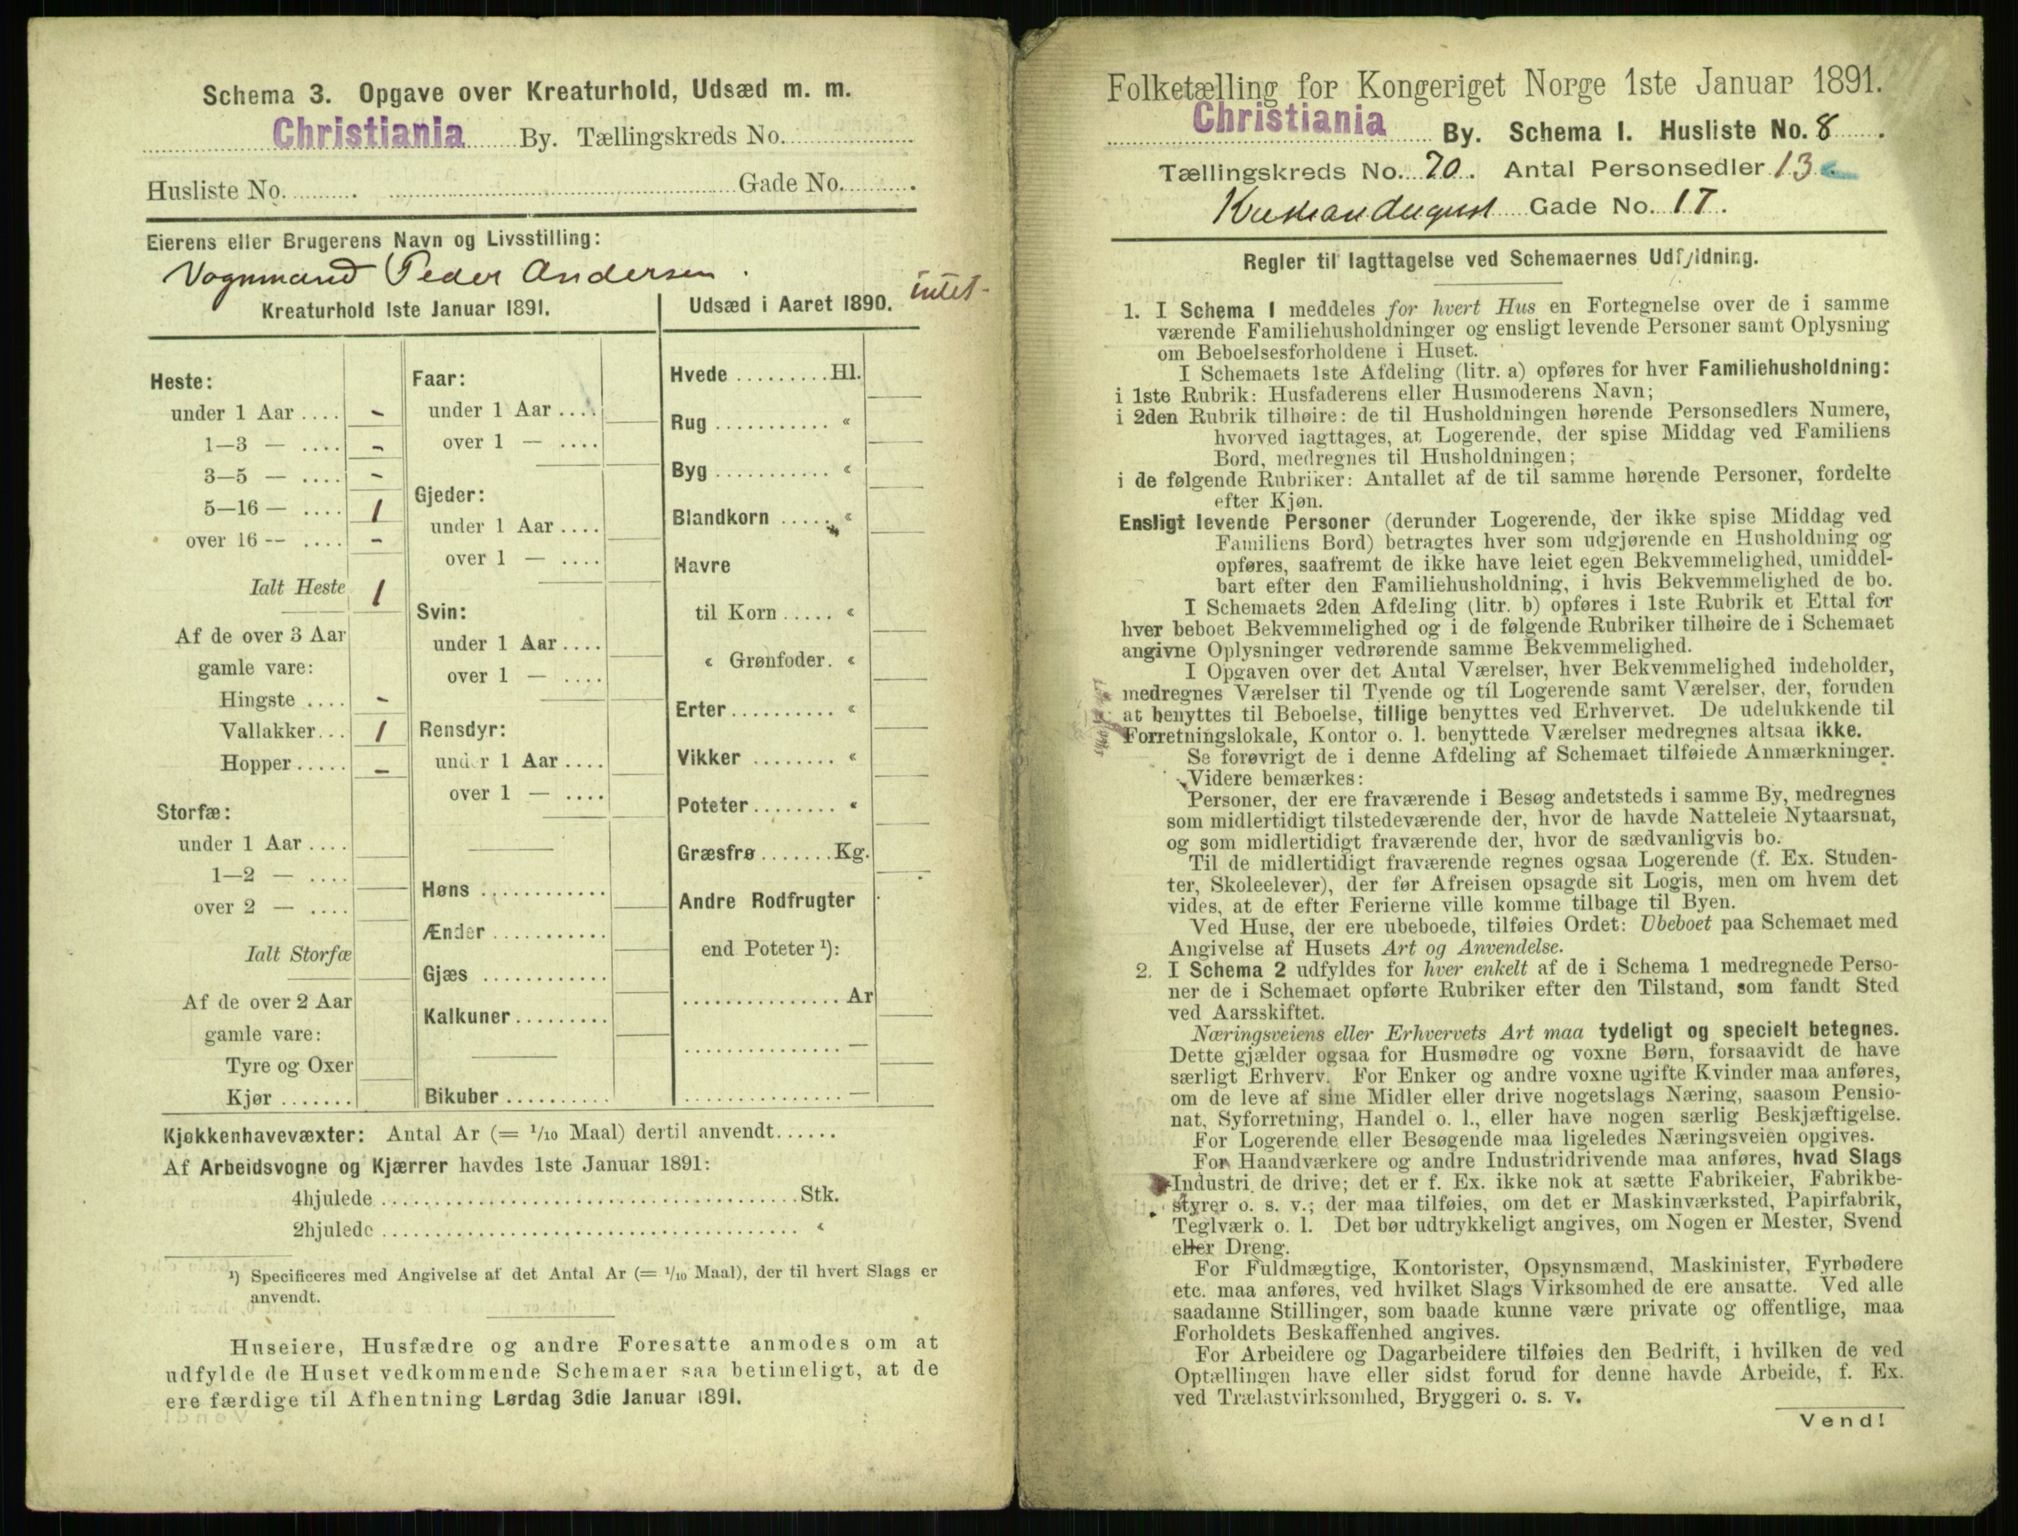 Schema 3. Opgave over Kreaturhold, Udsæd m. m.
Christiania By. Tællingskreds No.
Husliste No. Gade No.
Eierens eller Brugerens Navn og Livsstilling:
Vognmand Peder Andersen.
Kreaturhold 1ste Januar 1891.
Heste:
under 1 Aar .... -
1—3 — .... -
3—5 — .... -
5—16 — .... 1
over 16 -- .... -
Ialt Heste 1
Af de over 3 Aar
gamle vare:
Hingste .... -
Vallakker... 1
Hopper..... -
Storfæ:
under 1 Aar ....
1—2 — ....
over 2 — ....
Ialt Storfæ
Af de over 2 Aar
gamle vare:
Tyre og Oxer
Kjør .......
Faar:
under 1 Aar ....
over 1 — ....
Gjeder:
under 1 Aar ....
over 1 — ....
Svin:
under 1 Aar....
over 1 — ....
Rensdyr:
under 1 Aar ....
over 1 — ....
Høns ............
Ænder ...........
Gjæs ............
Kalkuner.........
Bikuber ..........
Udsæd i Aaret 1890. intet-
Hvede .........Hl.
Rug ........... «
Byg ........... «
Blandkorn ..... «
Havre
til Korn ..... «
« Grønfoder. «
Erter.......... «
Vikker ........ «
Poteter........ «
Græsfrø.......Kg.
Andre Rodfrugter
end Poteter ¹):
............... Ar
............... —
............... —
Kjøkkenhavevæxter: Antal Ar (= 1/10 Maal) dertil anvendt......
Af Arbeidsvogne og Kjærrer havdes 1ste Januar 1891:
4hjulede ........................................Stk.
2hjulede ........................................ «
¹) Specificeres med Angivelse af det Antal Ar (= 1/10 Maal), der til hvert Slags er
anvendt.
Huseiere, Husfædre og andre Foresatte anmodes om at
udfylde de Huset vedkommende Schemaer saa betimeligt, at de
ere færdige til Afhentning Lørdag 3die Januar 1891.
Folketælling for Kongeriget Norge 1ste Januar 1891.
Christiania By. Schema 1. Husliste No. 8.
Tællingskreds No. 70. Antal Personsedler 13
Kristian August Gade No. 17.
Regler til Iagttagelse ved Schemaernes Udfyldning.
1. I Schema 1 meddeles for hvert Hus en Fortegnelse over de i samme
værende Familiehusholdninger og ensligt levende Personer samt Oplysning
om Beboelsesforholdene i Huset.
I Schemaets 1ste Afdeling (litr. a) opføres for hver Familiehusholdning:
i 1ste Rubrik: Husfaderens eller Husmoderens Navn;
i 2den Rubrik tilhøire: de til Husholdningen hørende Personsedlers Numere,
hvorved iagttages, at Logerende, der spise Middag ved Familiens
Bord, medregnes til Husholdningen;
i de følgende Rubriker: Antallet af de til samme hørende Personer, fordelte
efter Kjøn.
Ensligt levende Personer (derunder Logerende, der ikke spise Middag ved
Familiens Bord) betragtes hver som udgjørende en Husholdning og
opføres, saafremt de ikke have leiet egen Bekvemmelighed, umiddel-
bart efter den Familiehusholdning, i hvis Bekvemmelighed de bo.
I Schemaets 2den Afdeling (litr. b) opføres i 1ste Rubrik et Ettal for
hver beboet Bekvemmelighed og i de følgende Rubriker tilhøire de i Schemaet
angivne Oplysninger vedrørende samme Bekvemmelighed.
I Opgaven over det Antal Værelser, hver Bekvemmelighed indeholder,
medregnes Værelser til Tyende og til Logerende samt Værelser, der, foruden
at benyttes til Beboelse, tillige benyttes ved Erhvervet. De udelukkende til
Forretningslokale, Kontor o. l. benyttede Værelser medregnes altsaa ikke.
Se forøvrigt de i denne Afdeling af Schemaet tilføiede Anmærkninger.
Videre bemærkes:
Personer, der ere fraværende i Besøg andetsteds i samme By, medregnes
som midlertidigt tilstedeværende der, hvor de havde Natteleie Nytaarsnat,
og som midlertidigt fraværende der, hvor de sædvanligvis bo.
Til de midlertidigt fraværende regnes ogsaa Logerende (f. Ex. Studen-
ter, Skoleelever), der før Afreisen opsagde sit Logis, men om hvem det
vides, at de efter Ferierne ville komme tilbage til Byen.
Ved Huse, der ere ubeboede, tilføies Ordet: Ubeboet paa Schemaet med
Angivelse af Husets Art og Anvendelse.
2. I Schema 2 udfyldes for hver enkelt af de i Schema 1 medregnede Perso-
ner de i Schemaet opførte Rubriker efter den Tilstand, som fandt Sted
ved Aarsskiftet.
Næringsveiens eller Erhvervets Art maa tydeligt og specielt betegnes.
Dette gjælder ogsaa for Husmødre og voxne Børn, forsaavidt de have
særligt Erhverv. For Enker og andre voxne ugifte Kvinder maa anføres,
om de leve af sine Midler eller drive nogetslags Næring, saasom Pensio-
nat, Syforretning, Handel o. l., eller have nogen særlig Beskjæftigelse.
For Logerende eller Besøgende maa ligeledes Næringsveien opgives.
For Haandværkere og andre Industridrivende maa anføres, hvad Slags
Industri de drive; det er f. Ex. ikke nok at sætte Fabrikeier, Fabrikbe-
styrer o. s. v.; der maa tilføies, om det er Maskinværksted, Papirfabrik,
Teglværk o. l. Det bør udtrykkeligt angives, om Nogen er Mester, Svend
eller Dreng.
For Fuldmægtige, Kontorister, Opsynsmænd, Maskinister, Fyrbødere
etc. maa anføres, ved hvilket Slags Virksomhed de ere ansatte. Ved alle
saadanne Stillinger, som baade kunne være private og offentlige, maa
Forholdets Beskaffenhed angives.
For Arbeidere og Dagarbeidere tilføies den Bedrift, i hvilken de ved
Optællingen have eller sidst forud for denne havde Arbeide, f. Ex.
ved Trælastvirksomhed, Bryggeri o. s. v.
Vend!